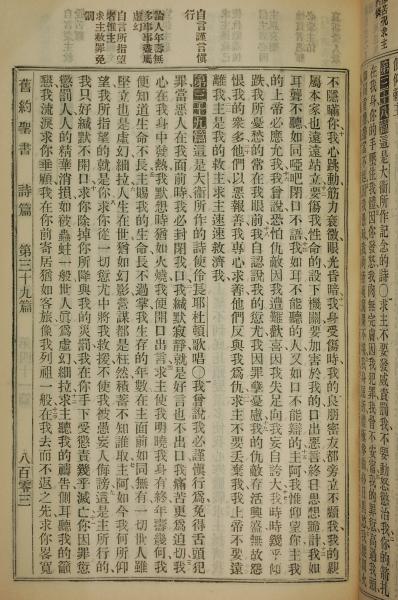 第三十八篇這是大衛所作記念的詩〇求主不要發威責罰我不要動怒懲治我你的箭扎
不隱瞞你我心跳動筋力衰微眼光昏暗我身受傷時我的良朋密友都旁立不顧我我的親
屬本家也遠遠站立要傷我性命的設下機關要加害於我的口出惡言終日思想詭計我如
耳聾不聽如同啞吧閉口不語我如耳不能聽的人又如口不能辯的主阿我惟仰望你主我
的上帝必應允我我曾說恐怕仇敵因我遭難歡喜因我失足向我妄自誇大我時時幾乎傾
跌我所憂愁的常在我眼前我自認我的愆尤我因罪孽憂慮我的仇敵存活興盛無故怨
恨我的衆多他們以惡報善我專心求善他們反與我爲仇求主不要丟棄我我上帝不要遠
離我主是我的救主求主速速救濟我
自言謹言愼行
第三十九篇這是大衛所作的詩使伶長耶杜頓歌唱〇我曾說我必謹愼行爲免得舌頭犯
罪當惡人在我面前時我必封閉我口我緘默寂靜就是好言也不出口我痛苦更爲迫切我
論人年壽無多事事盡屬
心在我身中發熱我默想時猶如火燒我便開口出言求主使我明曉我身有終年壽幾何我
便知道生命不長主賜我的生命長不過掌我生存的年數在主面前如同無有一切世人雖
自言所指望者惟主
求主赦罪免罰
堅立也是虛幻細拉人生在世猶如幻影營謀都是枉然積蓄不知誰取主阿如今我何所仰
望我所指望的就是你求你從一切愆尤中將我救援不使我被愚妄人侮謗這是主所行的
我只好緘默不開口求你除掉你所降與我的災罰我在你手下受懲責幾乎滅亡你因罪愆
懲罰人人的精華消損如被蟲蛀一般世人眞爲虛幻細拉求主聽我的禱告側耳聽我的籲
懇我流淚求你垂顧我在你前寄居猶如客旅像我列祖一般在我去而不返之先求你畧寬
舊約聖書 詩篇 第三十九篇 八百零三